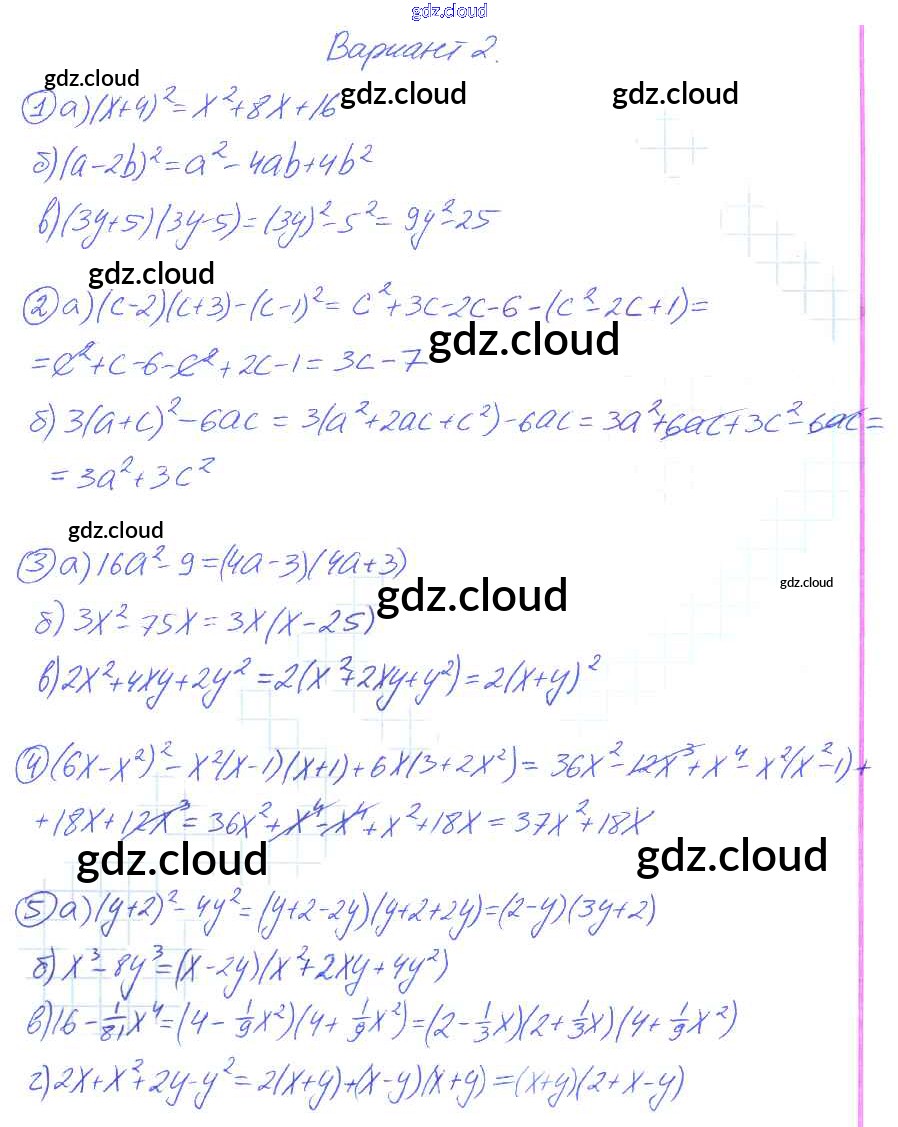 gdz.cloud
Вариант 2.
gdz.cloud
① а) (x+4)² = x² + 8x + 16
gdz.cloud
gdz.cloud
б) (a-2b)² = a² - 4ab + 4b²
в) (3y+5)(3y-5) = (3y)² - 5² = 9y² - 25
gdz.cloud
② а) (c-2)(c+3) - (c-1)² = c² + 3c - 2c - 6 - (c² - 2c + 1) =
gdz.cloud
= c² + c - 6 - c² + 2c - 1 = 3c - 7
б) 3(a+c)² - 6ac = 3(a² + 2ac + c²) - 6ac = 3a² + 6ac + 3c² - 6ac =
= 3a² + 3c²
gdz.cloud
③ а) 16a² - 9 = (4a-3)(4a+3)
gdz.cloud
gdz.cloud
б) 3x² - 75x = 3x(x-25)
в) 2x² + 4xy + 2y² = 2(x² + 2xy + y²) = 2(x+y)²
④ (6x-x²)² - x²(x-1)(x+1) + 6x(3+2x²) = 36x² - 12x³ + x⁴ - x²(x²-1) +
+ 18x + 12x³ = 36x² + x⁴ - x⁴ + x² + 18x = 37x² + 18x
gdz.cloud
gdz.cloud
⑤ а) (y+2)² - 4y² = (y+2-2y)(y+2+2y) = (2-y)(3y+2)
б) x³ - 8y³ = (x-2y)(x² + 2xy + 4y²)
в) 16 - 1/81 x⁴ = (4 - 1/9 x²)(4 + 1/9 x²) = (2 - 1/3 x)(2 + 1/3 x)(4 + 1/9 x²)
г) 2x + x² + 2y - y² = 2(x+y) + (x-y)(x+y) = (x+y)(2+x-y)